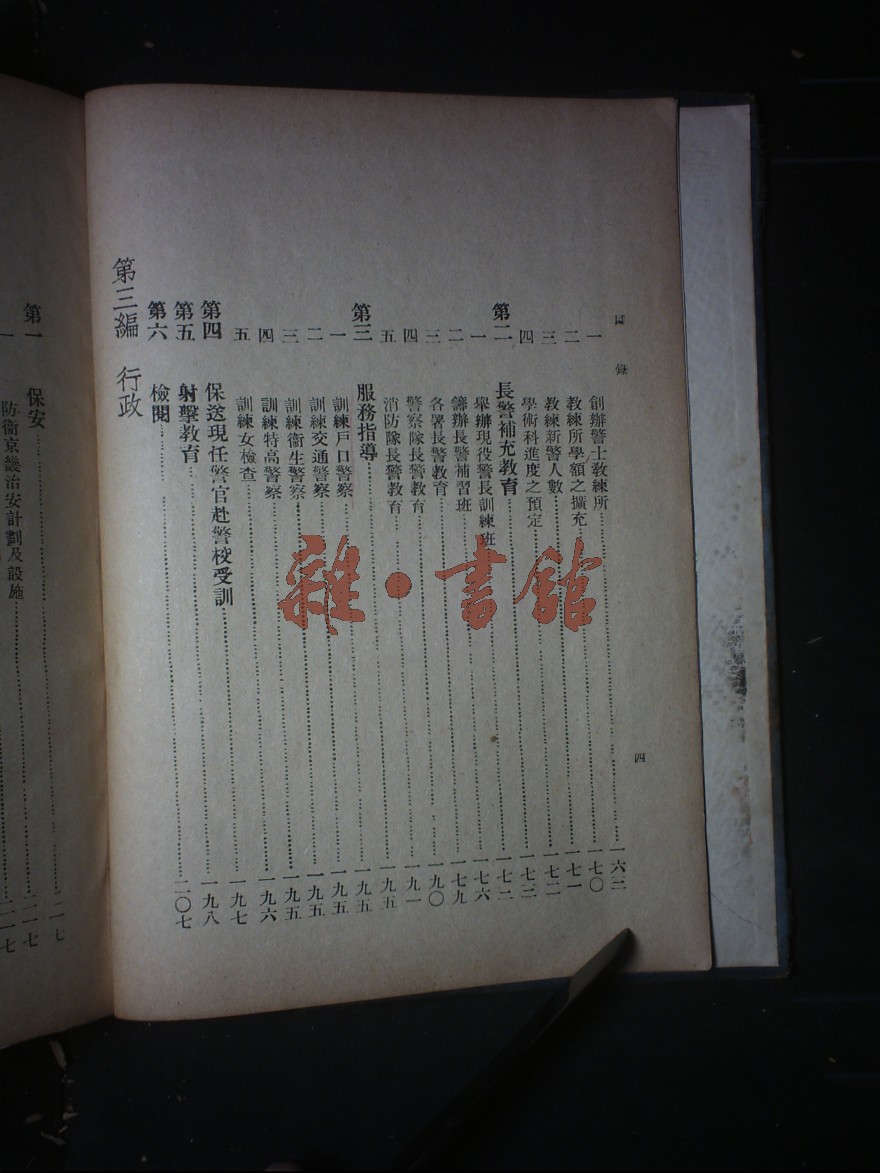 目錄 四
一 創辦警士教練所 一六三
二 教練所學額之擴充 一七〇
三 教練新警人數 一七一
四 學術科進度之預定 一七二
第二 長警補充教育 一七三
一 舉辦現役警長訓練班 一七二
二 籌辦長警補習班 一七六
三 各署長警教育 一七九
四 警察隊長警教育 一九〇
五 消防隊長警教育 一九一
第三 服務指導 一九五
一 訓練戶口警察 一九五
二 訓練交通警察 一九五
三 訓練衛生警察 一九五
四 訓練特高警察 一九五
五 訓練女檢查 一九六
第四 保送現任警官赴警校受訓 一九七
第五 射擊教育 一九八
第六 檢閱 二〇七
第三編 行政
第一 保安 二一七
一 防衛京畿治安計劃及設施 二一七
雜·書館